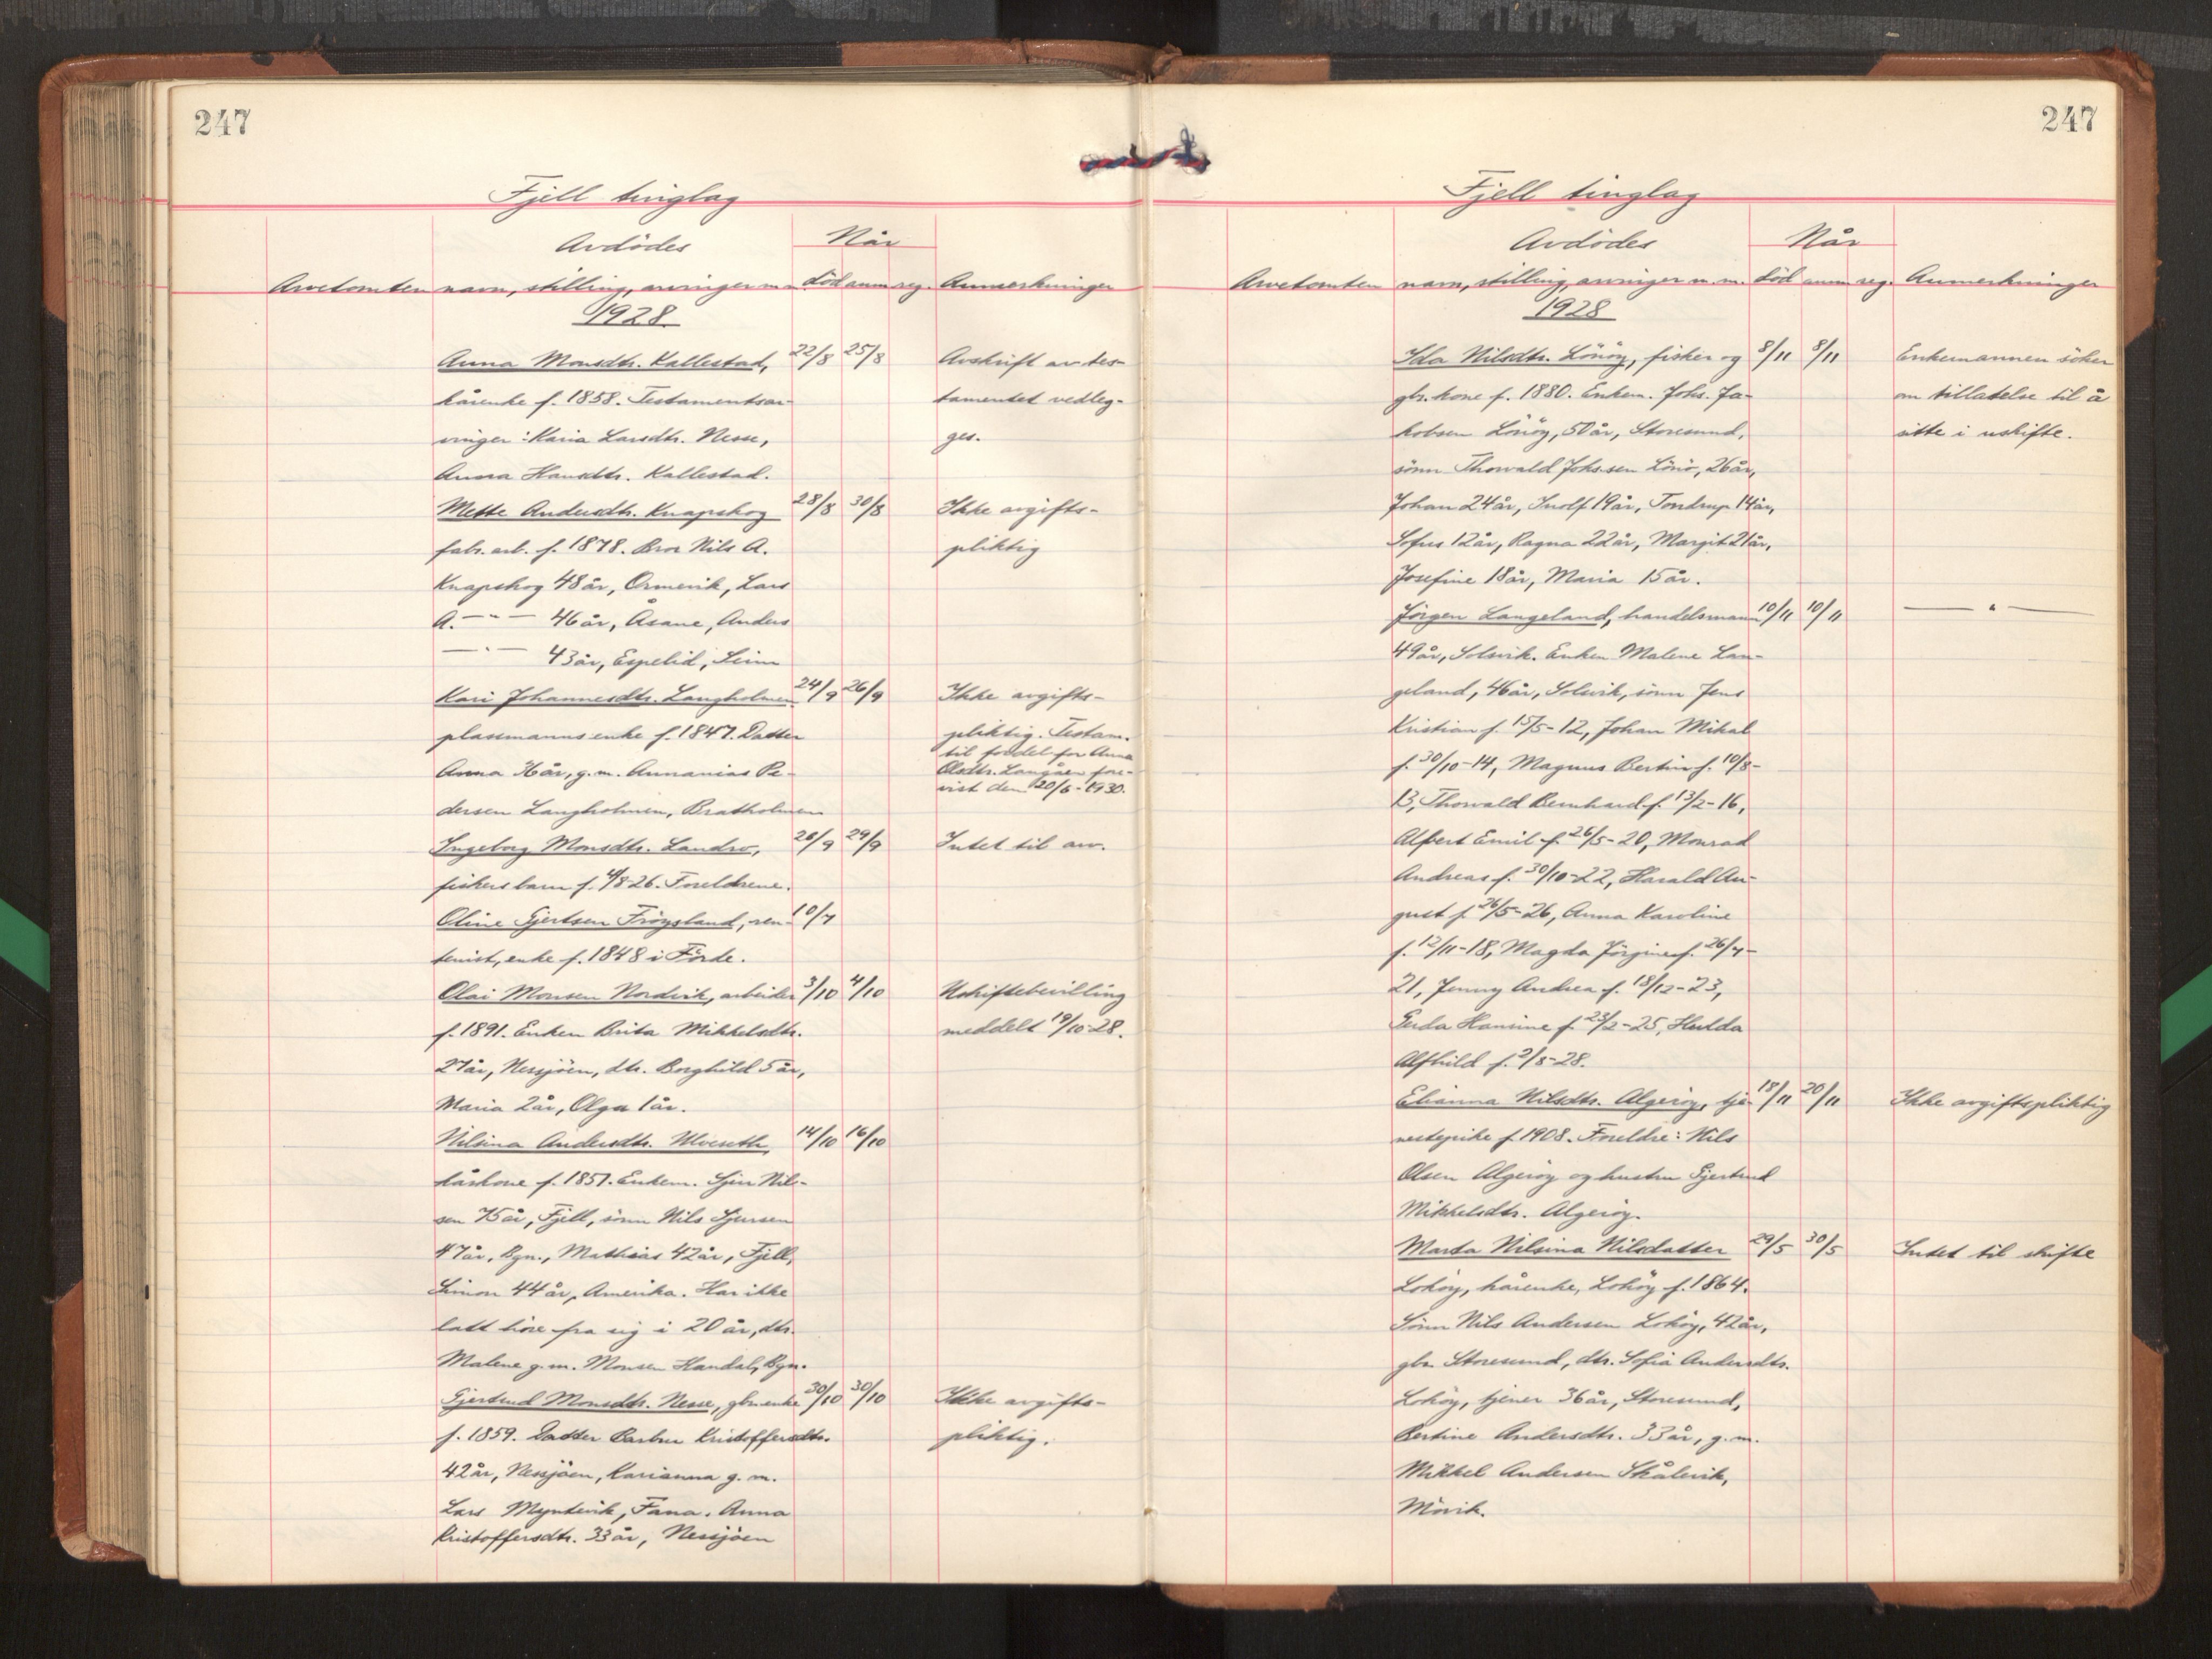 247
Fjell tinglag
Avdödes
Når
Arvetomten navn, stilling, arvinger m.m. död anm reg. Anmerkninger
1928
Anna Monsdtr. Kallestad, 22/8 25/8 Avskrift av tes-
kårenke f. 1858. Testamentsar- tamentet vedleg-
vinger: Karia Larsdtr. Nesse, ges.
Anna Hansdtr. Kallestad.
Mette Andersdtr. Knapskog 28/8 30/8 Ikke avgifts-
fabr. arb. f. 1878. Bror Nils A. pliktig
Knapskog 48 år, Ormevik, Lars
A. — " — 46 år, Åsane, Anders
— " — 43 år, Espelid, Seim
Kari Johannesdtr. Langholmen 24/9 26/9 Ikke avgifts-
plassmanns enke f. 1847. Datter pliktig. Testam.
til fordel for Anna
Anna 36 år, g.m. Annanias Pe- Olsdtr. Langåen fore-
vist den 20/6-1930.
dersen Langholmen, Bratholmen
Ingeborg Monsdtr. Landro, 28/9 29/9 Intet til arv.
fiskers barn f. 4/8-26. Foreldrene.
Oline Gjertsen Fröysland, ren- 10/7
tenist, enke f. 1848 i Förde.
Olai Monsen Nordvik, arbeider 3/10 4/10 Uskiftebevilling
f. 1891. Enken Brita Mikkelsdtr. meddelt 19/10-28.
27 år, Nessjöen, dtr. Borghild 5 år,
Maria 2 år, Olga 1 år.
Nilsina Andersdtr. Ulveseth, 14/10 16/10
kårkone f. 1851. Enkem. Sjur Nil-
sen 75 år, Fjell, sönn Nils Sjursen
47 år, Bgn., Mathias 42 år, Fjell,
Simon 44 år, Amerika. Har ikke
latt höre fra sig i 20 år, dtr.
Malene g.m. Monsen Handal, Bgn.
Gjertrud Monsdtr. Nesse, gbr.enke 30/10 30/10 Ikke avgifts-
f. 1859. Datter Barbru Kristoffersdtr. pliktig.
42 år, Nessjöen, Karianna g.m.
Lars Myntevik, Fana. Anna
Kristoffersdtr. 33 år, Nessjöen
247
Fjell tinglag
Avdödes
Når
Arvetomten navn, stilling, arvinger m.m. död anm reg. Anmerkninger
1928
Ida Nilsdtr. Lönöy, fisker og 8/11 8/11 Enkemannen söker
gbr. kone f. 1880. Enkem. Johs. Ja- om tillatelse til å
kobsen Lönöy, 50 år, Storesund, sitte i uskifte.
sönn Thorvald Johs.sen Lönö, 26 år,
Johan 24 år, Inolf 19 år, Tondrup 14 år,
Sofus 12 år, Ragna 22 år, Margit 21 år,
Josefine 18 år, Maria 15 år.
Jörgen Langeland, handelsmann 10/11 10/11 — " —
49 år, Solsvik. Enken Malene Lan-
geland, 46 år, Solsvik, sönn Jens
Kristian f. 15/5-12, Johan Mikal
f. 30/10-14, Magnus Bertin f. 10/8-
13, Thorvald Bernhard f. 13/2-16,
Alfbert Emil f. 26/5-20, Monrad
Andreas f. 30/10-22, Harald Au-
gust f. 26/5-26, Anna Karoline
f. 12/11-18, Magda Jörgine f. 26/7-
21, Jenny Andrea f. 18/12-23,
Gerda Hansine f. 23/2-25, Hulda
Alfhild f. 2/8-28.
Elianna Nilsdtr. Algeröy, tje- 18/11 20/11 Ikke avgiftspliktig
nestepike f. 1908. Foreldre: Nils
Olsen Algeröy og hustru Gjertrud
Mikkelsdtr. Algeröy.
Marta Nilsina Nilsdatter 29/5 30/5 Intet til skifte
Loköy, kårenke, Loköy f. 1864.
Sönn Nils Andersen Loköy, 42 år,
gbr. Storesund, dtr. Sofia Andersdtr.
Loköy, tjener 36 år, Storesund,
Bertine Andersdtr. 33 år, g.m.
Mikkel Andersen Skålevik,
Mövik.